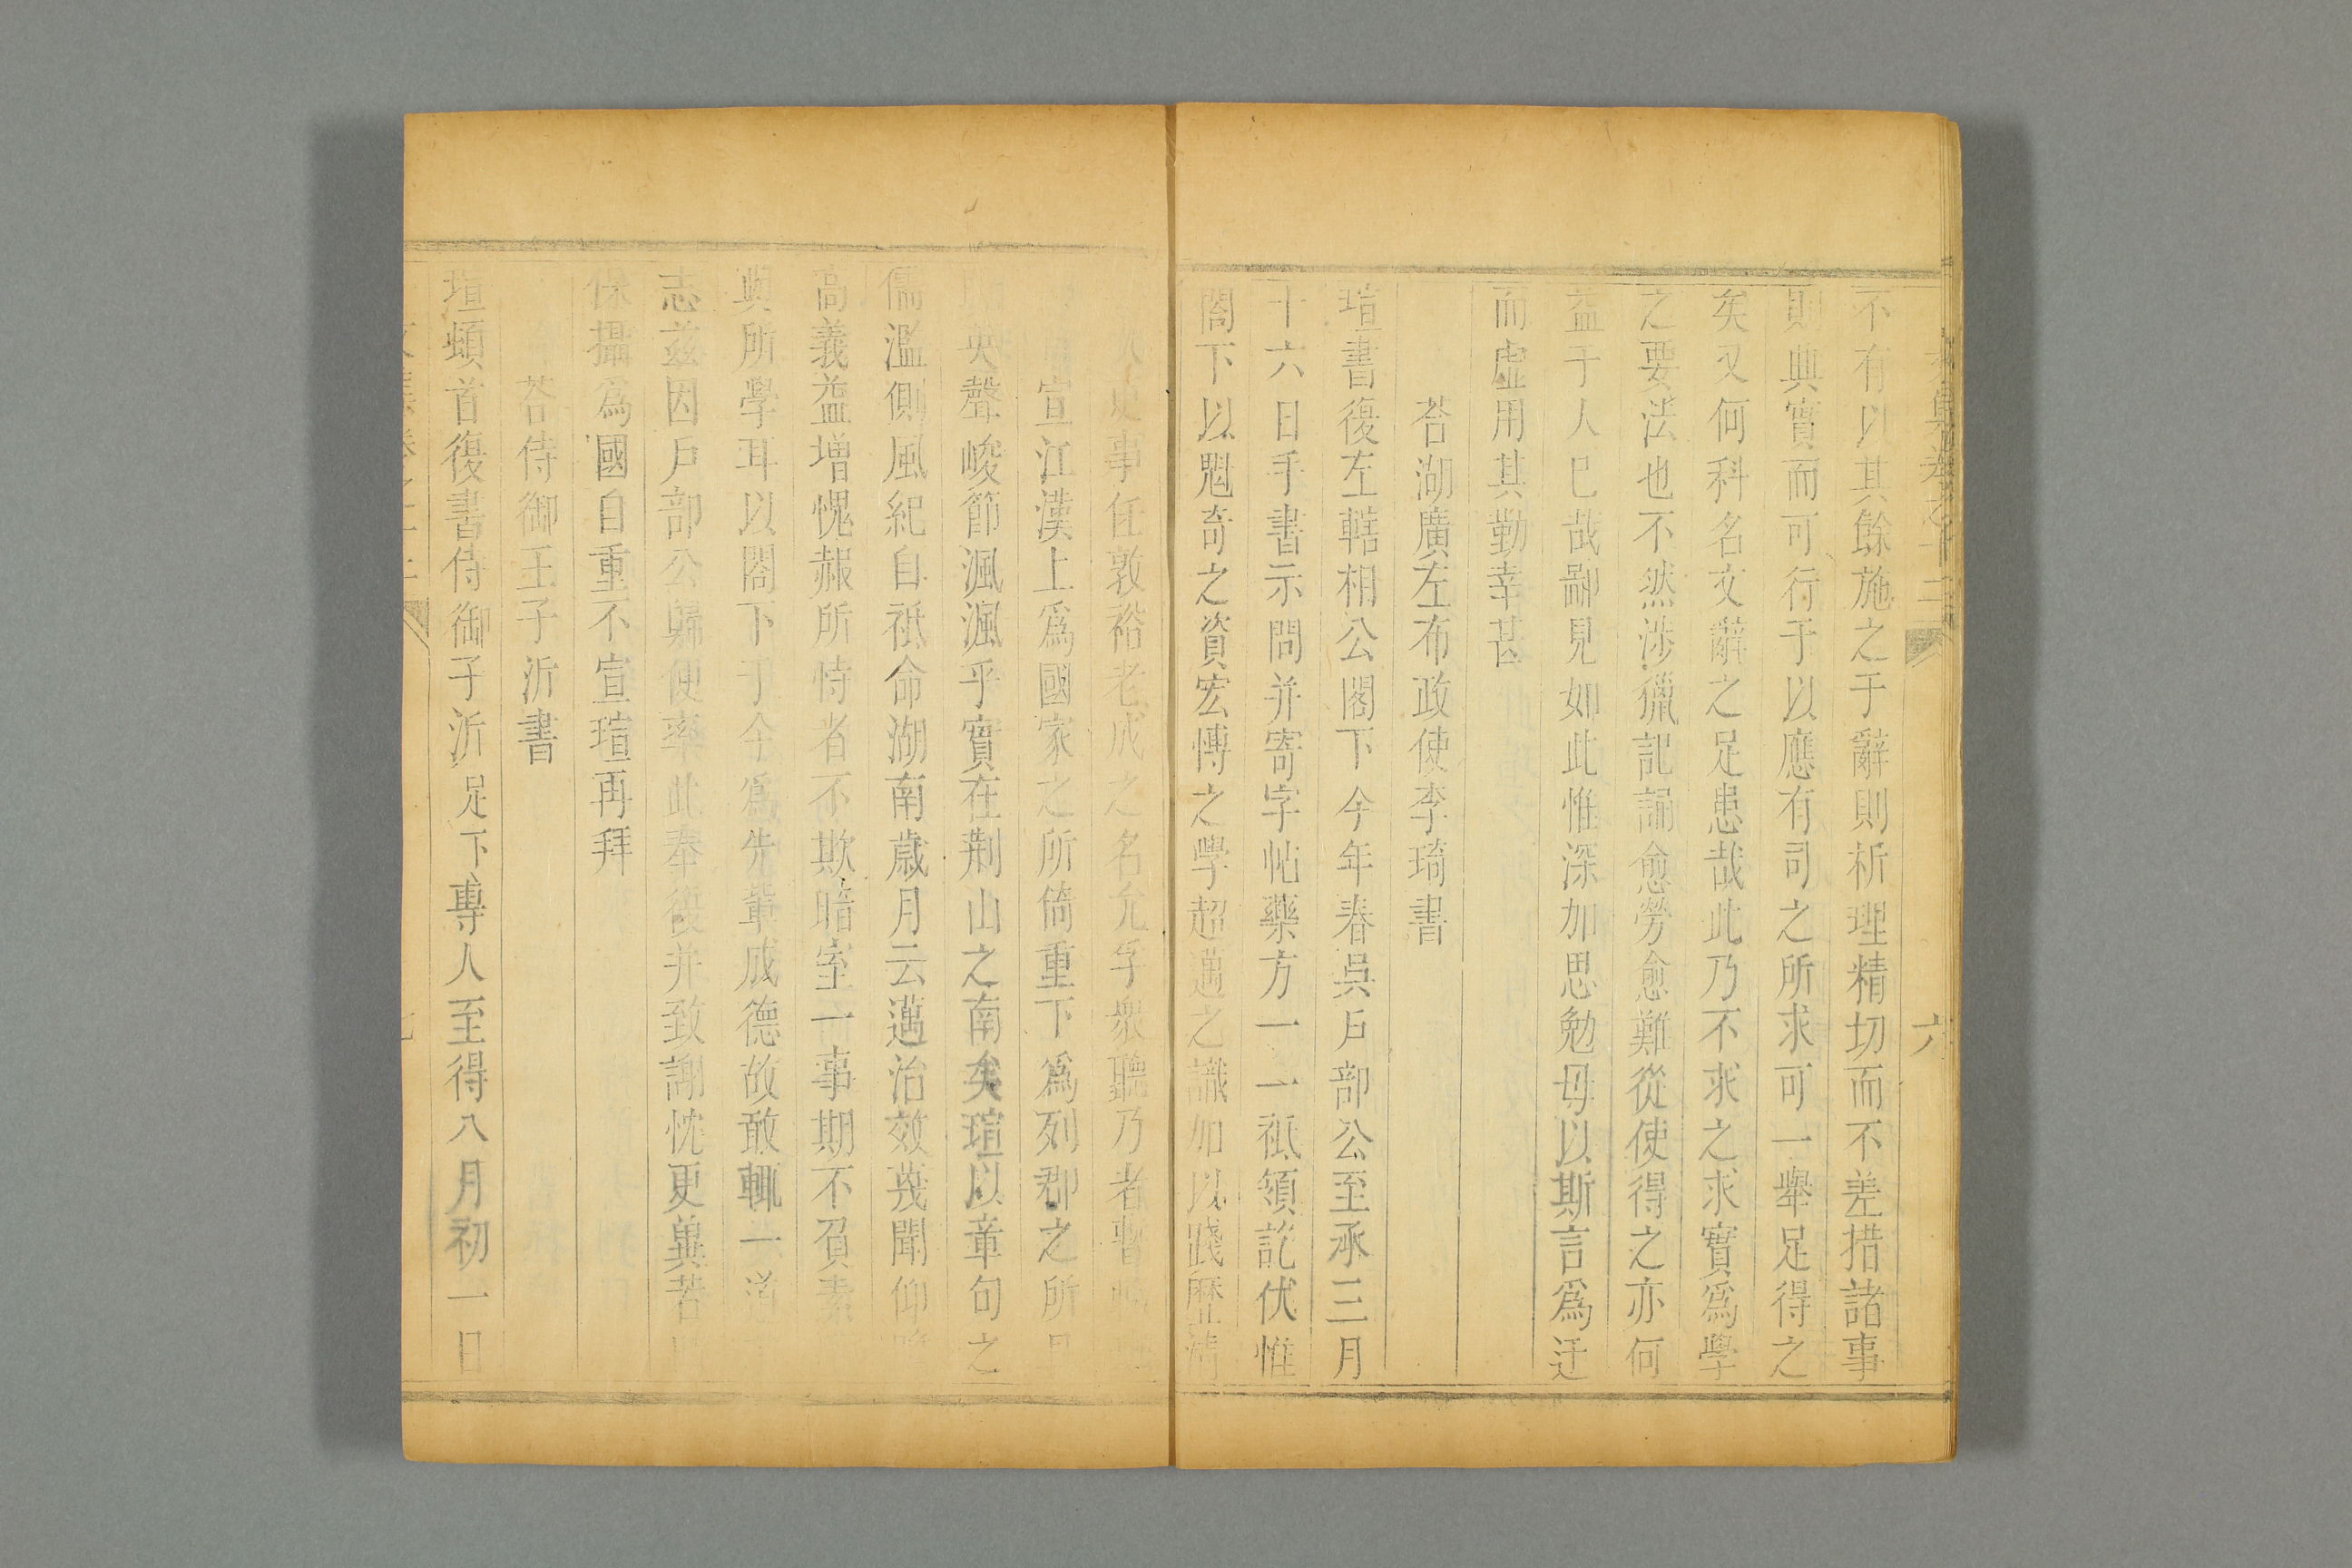 文集卷之十二
六
不有以其餘施之于辭則析理精切而不差措諸事
則典實而可行于以應有司之所求可一舉足得之
矣又何科名文辭之足患哉此乃不求之求實為學
之要法也不然涉獵記誦愈勞愈難從使得之亦何
益于人已哉鄙見如此惟深加思勉毋以斯言為迂
而虛用其勤幸甚
荅湖廣左布政使李琦書
瑄書復左轄相公閣下今年春吳戶部公至承三月
十六日手書示問并寄字帖藥方一一祗領訖伏惟
閣下以魁奇之資宏博之學超邁之識加以踐歷清
久更事任敦裕老成之名允孚衆聽乃者暫
宣江漢上為國家之所倚重下為列郡之所
英聲峻節渢渢乎實在荆山之南矣瑄以章句之
儒濫側風紀自祗命湖南歲月云邁治效蔑聞仰
高義益增愧赧所恃者不欺暗室一事期不負素
與所學耳以閣下于今為先輩成德故敢輒一道
志兹因戶部公歸便率此奉復并致謝忱更兾若
保攝為國自重不宣瑄再拜
荅侍御王子沂書
瑄頓首復書侍御子沂足下專人至得八月初一日